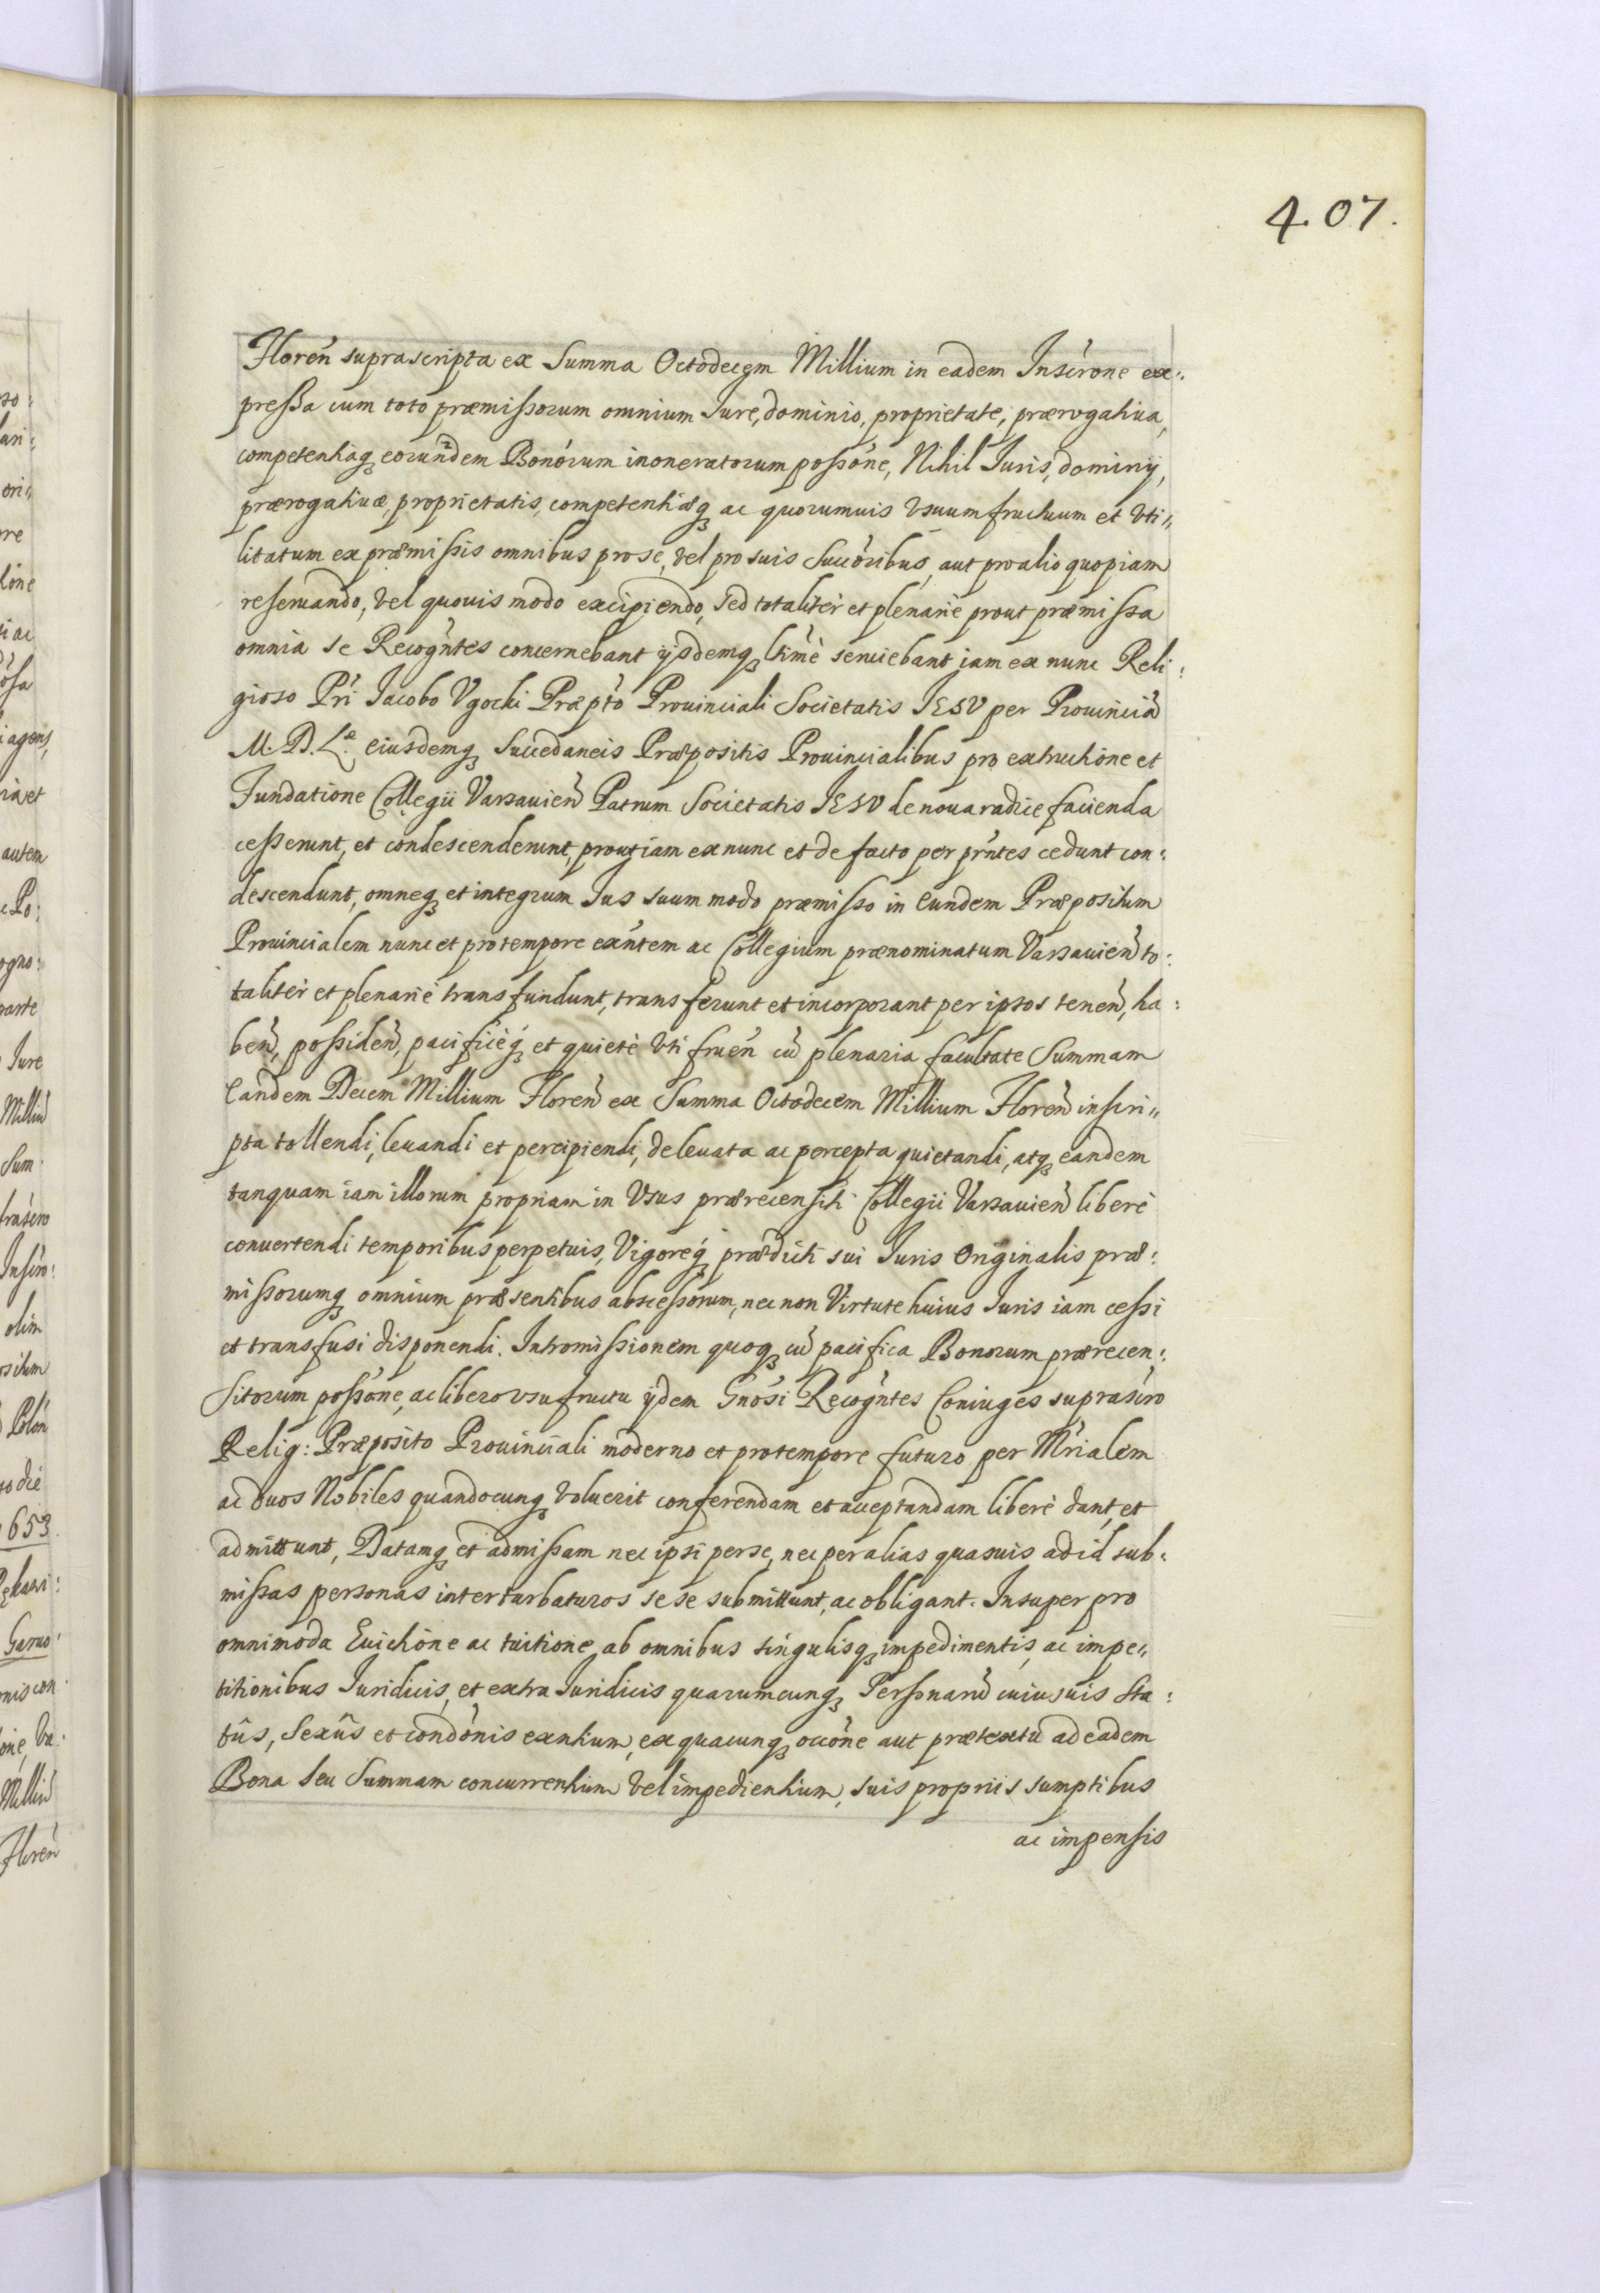 407.
Floreñ suprascripta ex Summa Octodecem Millium in eadem Inscrone ex:
pressa cum toto præmissorum omnium Iure, dominio, proprietate, prærogatiua,
competentiaq eorundem Bonorum inoneratorum possone, Nihil Iuris, dominij,
prærogatiuæ, proprietatis, competentiæq ac quorumuis vsuumfructuum et vti„
litatum ex præmissis omnibus pro se, vel pro suis Succoribus, aut pro alio quopiam
reseruando, vel quouis modo excipiendo, sed totaliter et plenarie prout præmissa
omnia se Recogntes concernebant ijsdemq ltime seruiebant iam ex nunc Reli:
gioso Pri Jacobo Vgocki Præpto Prouinciali Societatis IESV per Prouinciã
M. D. L.æ eiusdemq Succedaneis Præpositis Prouincialibus pro extructione et
Fundatione Collegii Varsauień Patrum Societatis IESV de noua radice facienda
cesserunt, et condescenderunt, prout iam ex nunc et de facto per prntes cedunt con:
descendunt, omneq et integrum Ius suum modo præmisso in Eundem Præpositum
Prouincialem nunc et pro tempore exntem ac Collegium prænominatum Varsauień to:
taliter et plenarie transfundunt, transferunt et incorporant per ipsos teneñ, ha:
beñ, possideñ, pacificèq et quietè vti frueñ cũ plenaria facultate Summam
Eandem Decem Millium Floreñ ex Summa Octodecem Millium Floreñ inscri„
pta tollendi, leuandi et percipiendi, de leuata ac percepta quietandi, atq eandem
tanquam iam illorum propriam in Vsus prærecensiti Collegii Varsauień liberè
conuertendi temporibus perpetuis, Vigoreq prædicti sui Iuris Originalis præ:
missorumq omnium præsentibus abscessorum, nec non Virtute huius Iuris iam cessi
et transfusi disponendi. Intromissionem quoq cũ pacifica Bonorum prærecen:
sitorum possone, ac libero vsufructu ijdem Gnosi Recogntes Coniuges suprascro
Relig: Præposito Prouinciali moderno et pro tempore futuro per Mrialem
ac duos Nobiles quandocunq voluerit conferendam et acceptandam liberè dant, et
admittunt, Datamq et admissam nec ipsi per se, nec per alias quasuis ad id sub:
missas personas interturbaturos se se submittunt, ac obligant. Insuper pro
omnimoda Euictione ac tuitione ab omnibus singulisq impedimentis, ac impe:
titionibus Iuridicis, et extra Iuridicis quarumcunq Personarũ cuiusuis sta:
tûs, Sexûs et condonis exntium, ex quacunq occone aut prætextu ad eadem
Bona seu Summam concurrentium vel impedientium, suis propriis sumptibus
ac impensis